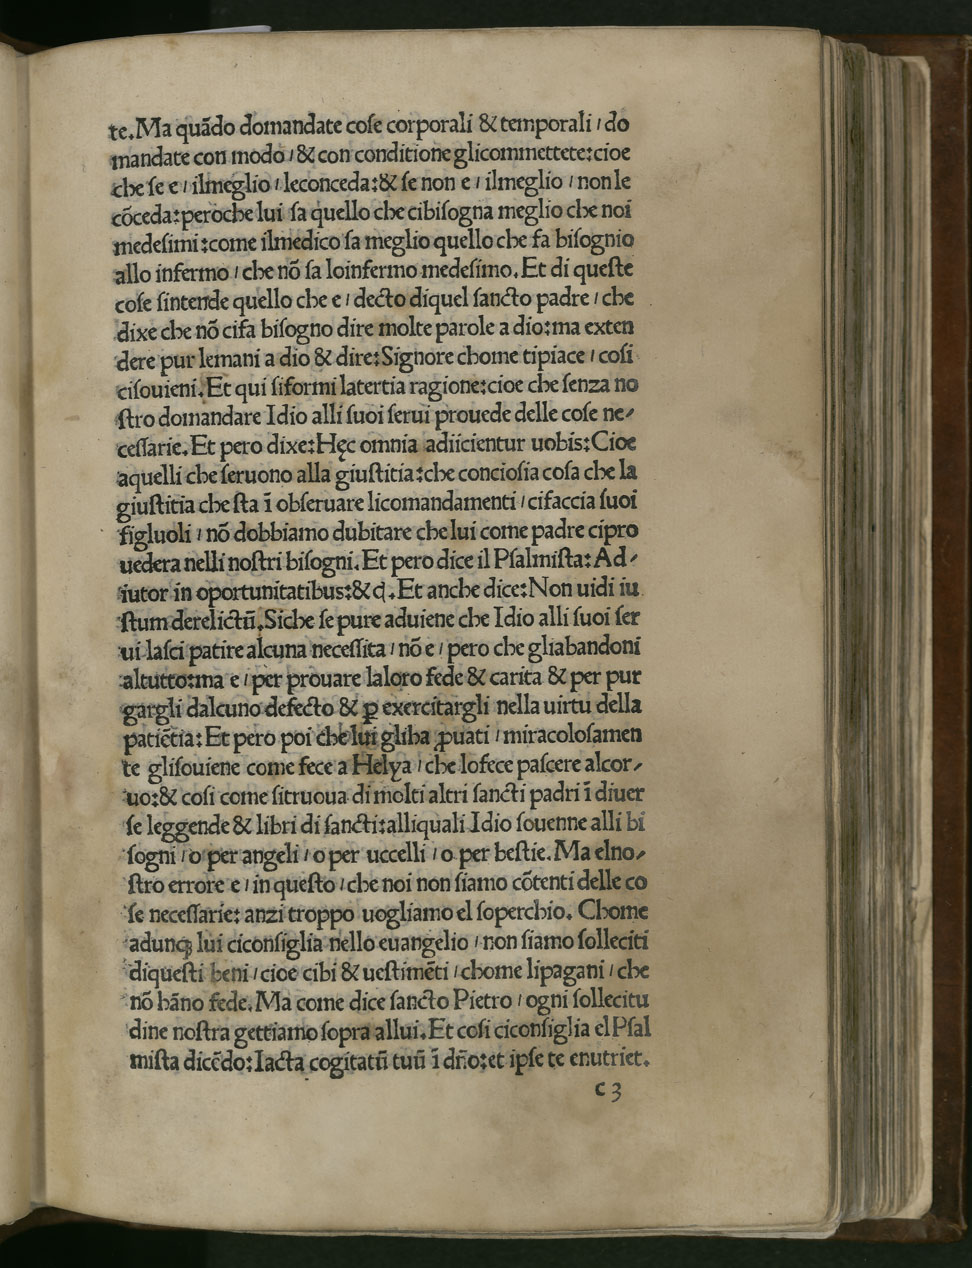 te.Ma quãdo domandate coſe corporali &temporali / do
mandate con modo / & con conditione glicommettete:cioe
che ſe e / ilmeglio / leconceda:& ſe non e / ilmeglio / nonle
cõceda:peroche lui ſa quello che cibiſogna meglio che noi
medeſimi:come ilmedico ſa meglio quello che fa biſognio
allo infermo / che nõ ſa loinfermo medeſimo.Et di queſte
coſe ſintende quello che e / decto diquel ſancto padre / che
dixe che nõ cifa biſogno dire molte parole a dio:ma exten
dere pur lemani a dio & dire:Signore chome tipiace / coſi
ciſouieni.Et qui ſiformi latertia ragione:cioe che ſenza no
ſtro domandare Idio alli ſuoi ſerui prouede delle coſe ne⸗
ceſſarie.Et pero dixe:Hęc omnia adiicientur uobis:Cioe
aquelli che ſeruono alla giuſtitia:che concioſia coſa che la
giuſtitia che ſta ĩ obſeruare licomandamenti / cifaccia ſuoi
figluoli / nõ dobbiamo dubitare che lui come padre cipro
uedera nelli noſtri biſogni.Et pero dice il Pſalmiſta:Ad⸗
iutor in oportunitatibus:&cꝭ.Et anche dice:Non uidi iu
ſtum derelictũ.Siche ſe pure aduiene che Idio alli ſuoi ſer
ui laſci patire alcuna neceſſita / nõ e / pero che gliabandoni
altutto:ma e / per prouare laloro fede & carita & per pur
gargli dalcuno defecto & ꝑ exercitargli nella uirtu della
patiẽtia:Et pero poi che lui gliha ꝓuati / miracoloſamen
te gliſouiene come fece a Helya / che lofece paſcere alcor⸗
uo:& coſi come ſitruoua di molti altri ſancti padri ĩ diuer
ſe leggende & libri di ſancti:alliquali Idio ſouenne alli bi
ſogni / o per angeli / o per uccelli / o per beſtie.Ma elno⸗
ſtro errore e / in queſto / che noi non ſiamo cõtenti delle co
ſe neceſſarie: anzi troppo uogliamo el ſoperchio. Chome
adunqꝫ lui ciconſiglia nello euangelio / non ſiamo ſolleciti
diqueſti beni / cioe cibi & ueſtimẽti / chome lipagani / che
nõ hãno fede.Ma come dice ſancto Pietro / ogni ſollecitu
dine noſtra gettiamo ſopra allui.Et coſi ciconſiglia el Pſal
miſta dicẽdo:Iacta cogitatũ tuũ ĩ dño:et ipſe te enutriet.
c 3